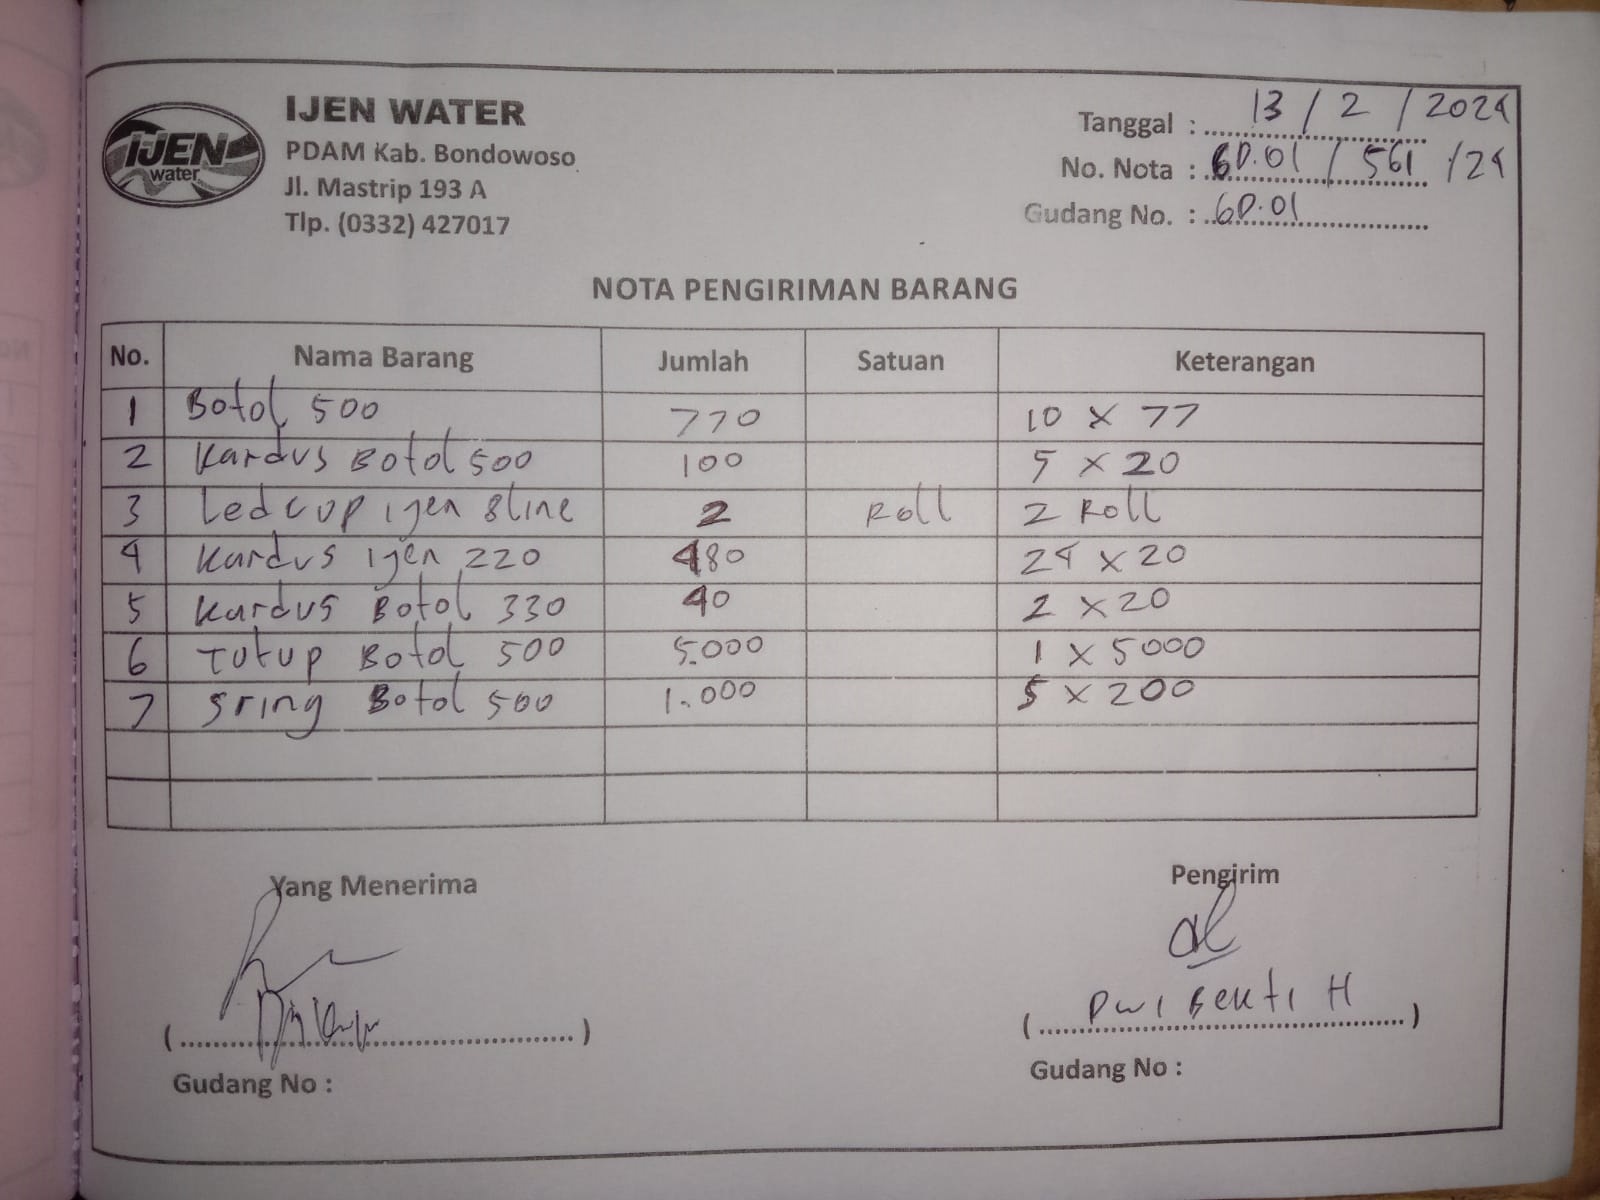 IJEN
water
IJEN WATER
PDAM Kab. Bondowoso
Jl. Mastrip 193 A
Tlp. (0332) 427017
Tanggal : 13 / 2 / 2024
No. Nota : GD.01 / 561 / 24
Gudang No. : GD.01
NOTA PENGIRIMAN BARANG
No. Nama Barang Jumlah Satuan Keterangan
1 Botol 500 770 10 x 77
2 Kardus Botol 500 100 5 x 20
3 Ledcup ijen 8line 2 Roll 2 Roll
4 Kardus ijen 220 480 24 x 20
5 Kardus Botol 330 40 2 x 20
6 Tutup Botol 500 5.000 1 x 5000
7 Sring Botol 500 1.000 5 x 200
Yang Menerima Pengirim
Dwi Bekti H
Gudang No : Gudang No :